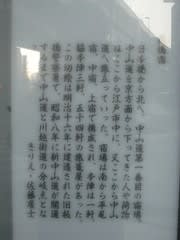 板橋宿
日本橋から北へ、中山道第一番目の宿場。
中山道を京方面から下ってきた人や荷物
はここから江戸市中に、又ここから中山
道へ旅立っていった。宿場は南から平尾
宿、中宿、上宿で構成され、本陣は一軒、
脇本陣三軒、五十四軒の旅籠屋があった。
この切絵は明治十六年に建造された旧板
橋警察署で、昭和八年に新中山道が開通
するまで中山道と川越街道の分岐点とな
きりえ・佐藤廣士